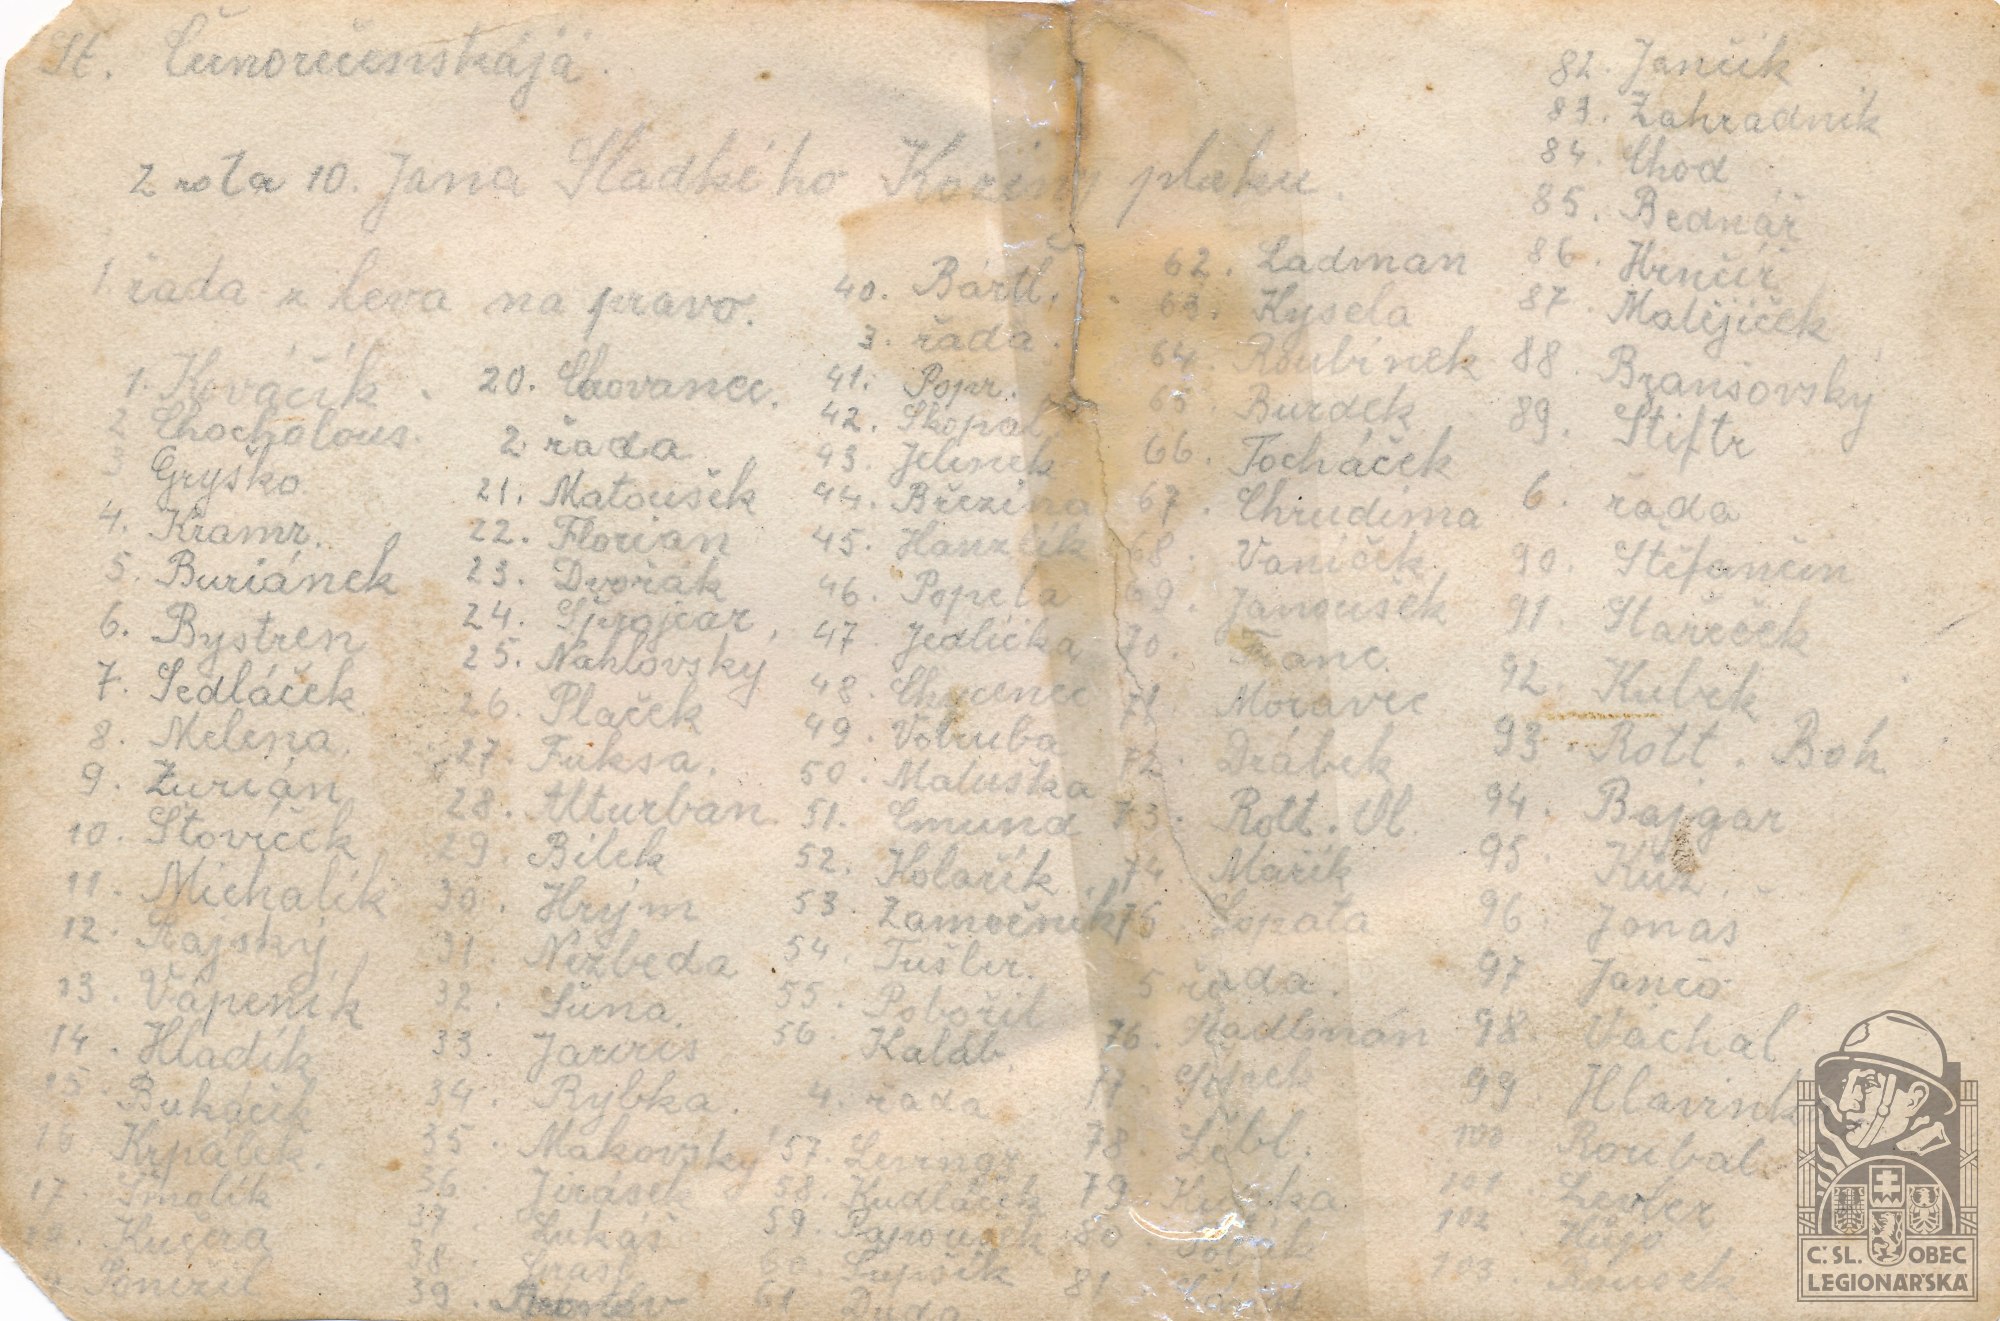 St. Čunorečenskájá.
2 rota 10. Jana Sladkého Koziny pluku.
1 řada z leva na pravo.
1. Kováčík
2 Chocholous.
3 Gryško
4. Kramr.
5. Buriánek
6. Bystren
7. Sedláček
8. Melena.
9. Žurián
10. Šťovíček
11. Michalík
12. Rajský
13. Vápeník
14. Hladík
15. Bukáček
16 Krpálek.
17. Smolík
18. Kučera
Ponížil
20. Chovanec.
2 řada
21. Matoušek
22. Florian
23. Dvořák
24. Šprajcar,
25. Nahlovský
26. Plaček
27. Fuksa.
28. Alturban
29. Bílek
30. Hrým
31. Nezbeda
32. Šuna.
33. Jarvis
34. Rybka.
35. Makovský
36. Jirásek
37. Lukáš
38.
39.
40. Bártl.
3. řada.
41. Popr.
42. Skopal
43. Jelínek
44. Březina
45. Hanzlík
46. Popela
47. Jedlička
48.
49. Vobruba
50. Matuška
51. Emund
52. Kolařík
53. Zámečník
54. Tušler.
55. Pobořil
56. Kaláb.
4. řada
57. Levingr
58. Kudláček
59. Papoušek
60 Lupsík
61 Duda
62. Ladman
63. Kysela
64. Roubínek
65. Burdek
66. Tocháček
67. Chrudima
68. Vaníček
69. Janoušek
70. Franc.
71. Moravec
72. Drábek
73. Rott. Vl.
74. Mařík
75 Lopata
5 řada.
76. Kadlman
77
78. Lébl.
79.
80
81.
82. Jančík
83. Zahradník
84. Chod
85. Bednář
86. Hrnčíř
87. Matějíček
88. Branšovský
89. Štiftr
6. řada
90. Štěfančin
91. Stařeček
92. Kubek
93 Rott. Boh
94. Bajgar
95 Kůž.
96. Jonáš
97 Jančo
98. Váchal
99. Hlavink
100 Roubal
101.
102
103.
Č. SL. OBEC
LEGIONÁŘSKÁ